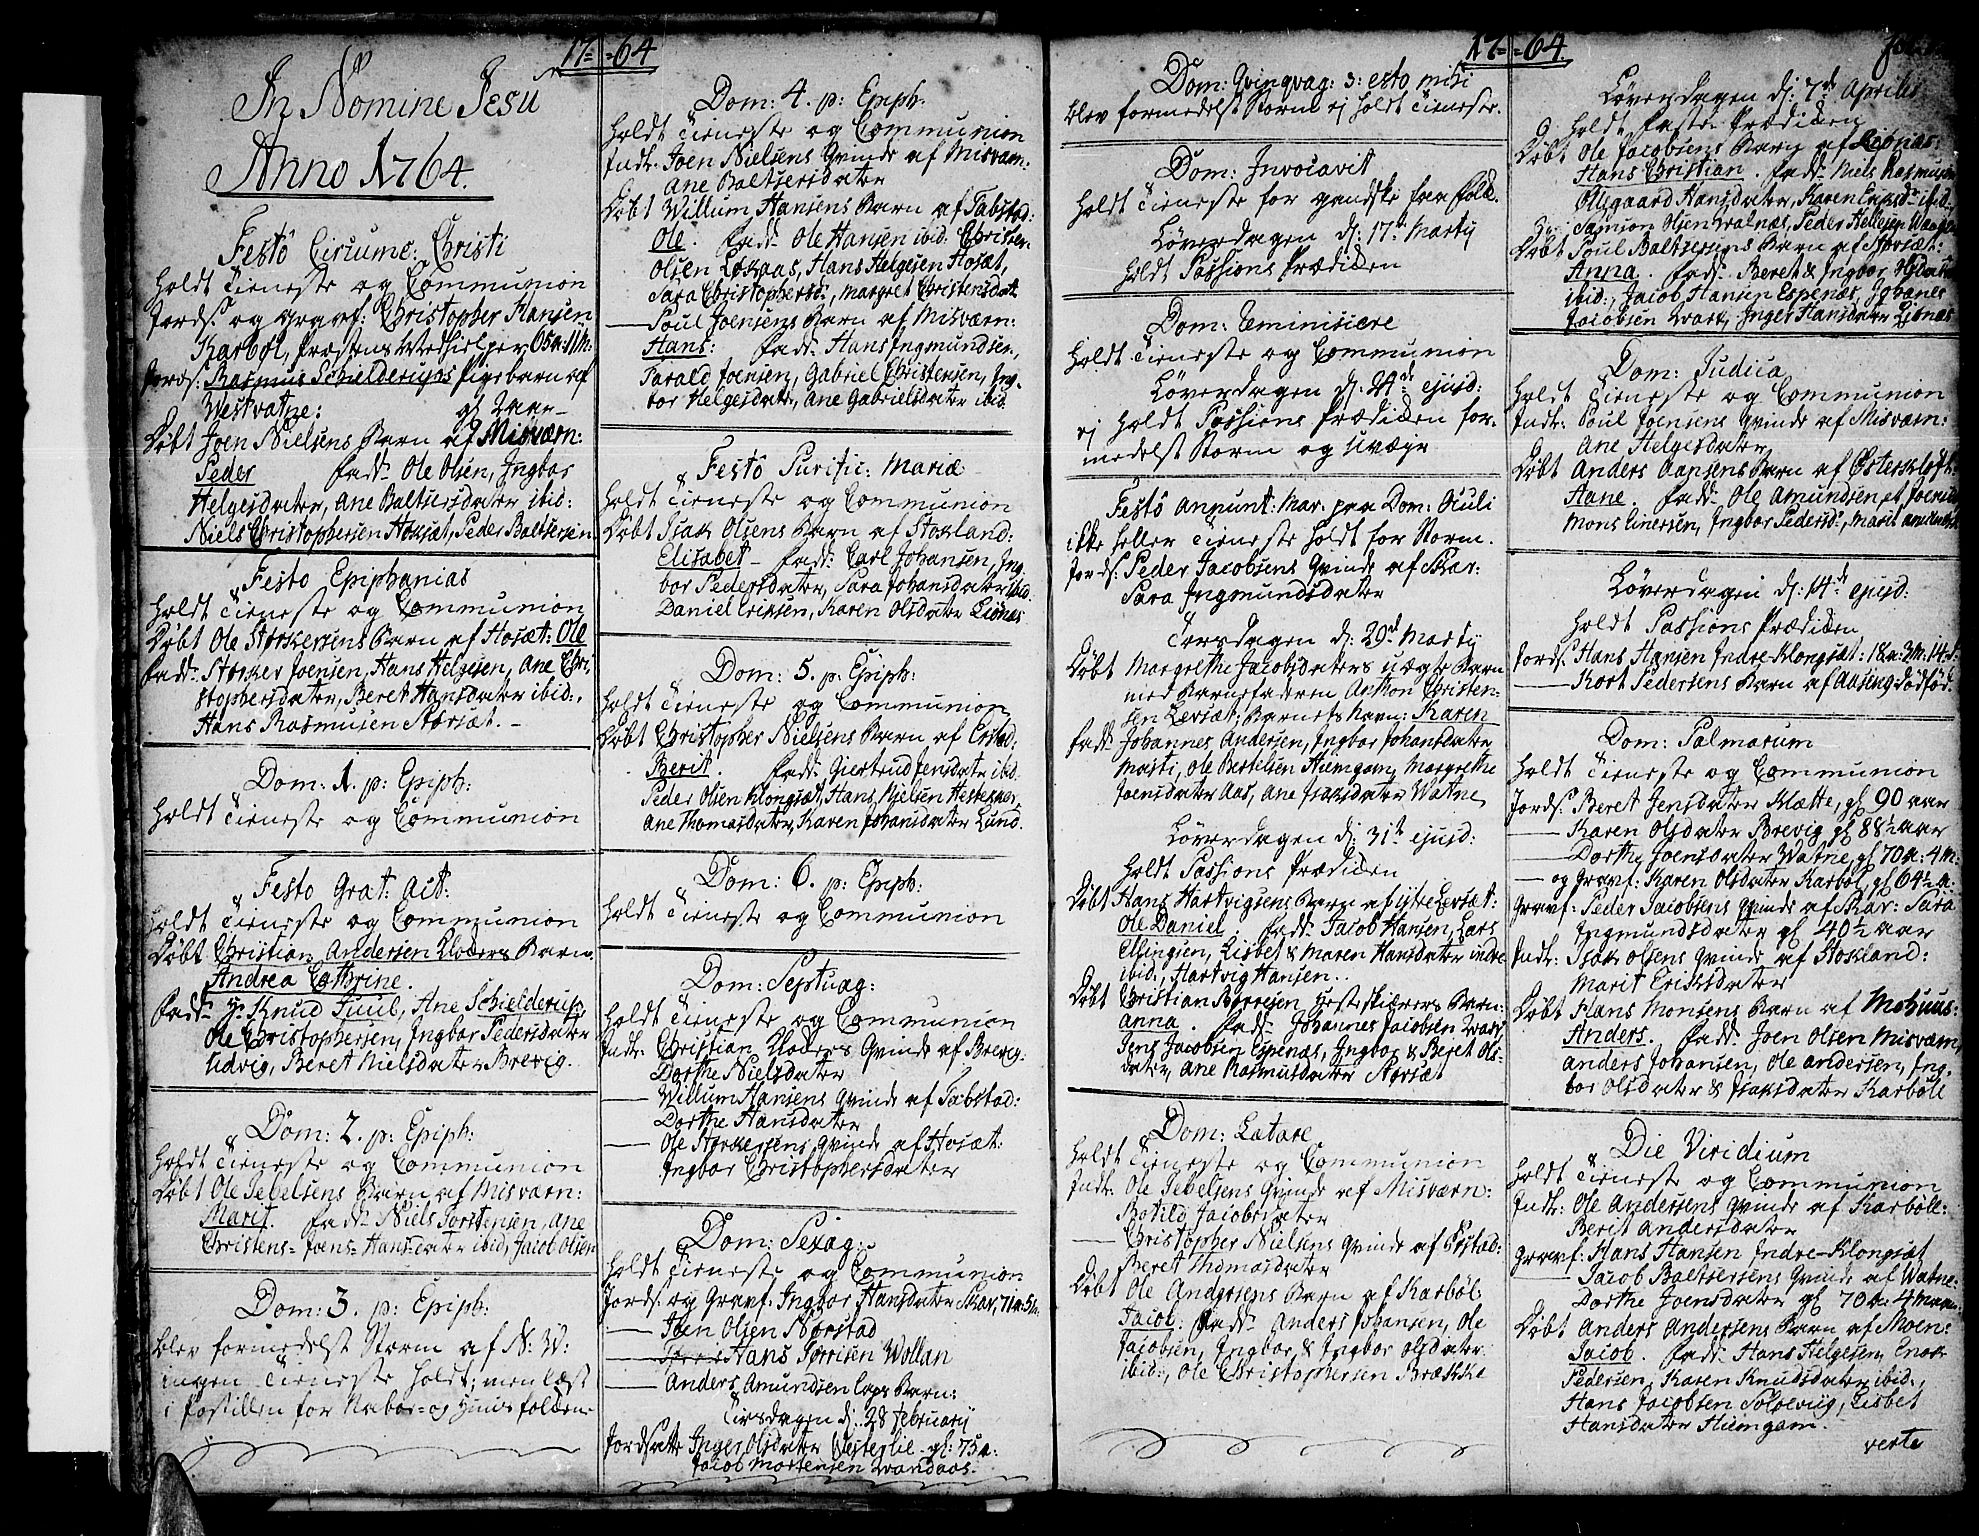 17=
In Nomine Jesu
Anno 1764.
Festo Circumc: Christi
Holdt Tieneste og Communion
Jords: og gravf: Christopher Hansen
Karbøl, Præstens Medhielper 65 a: 11 M:
Jords: Rasmus Schielderups Pigebarn af
Westvatne: gl
Døbt Joen Nielsens Barn af Misværn:
Peder Fadd: Ole Olsen, Ingbor
Helgesdater, Ane Baltsersdater ibid:
Niels Christophersen Hoksæt, Peder Baltsersen
Festo Epiphanias
Holdt Tieneste og Communion
Døbt Ole Storkersens Barn af Hosæt: Ole
Fadd: Storker Joensen, Hans Helgesen, Ane Chri-
stophersdater, Beret Hansdater ibid:,
Hans Rasmusen Storsæt.
Dom: 1. p: Epiph:
Holdt Tieneste og Communion
Festo Grat: Act:
Holdt Tieneste og Communion
Døbt Christian Andersen Kloders Barn
Andrea Cathrine.
Fadd: Hr Knud Juul, Ane Schielderup,
Ole Christophersen, Ingbor Pedersdater
Udvig, Beret Nielsdater Brevig.
Dom: 2. p: Epiph:
Holdt Tieneste og Communion
Døbt Ole Jebelsens Barn af Misværn:
Marit. Fadd: Niels Torstensen, Ane
Christens= Joens= Hansdater ibid, Jacob Olsen
Dom: 3. p: Epiph:
Blev formedelst Storm af N: W:
ingen Tieneste holdt; men læst
i Postillen for Nabor= og Huusfolkene
=64
Dom: 4. p: Epiph:
Holdt Tieneste og Communion
Indl: Joen Nielsens Qvinde af Misværn:
Ane Baltsersdater
Døbt Willum Hansens Barn af Tabstad:
Ole. Fadd: Ole Hansen ibid. Christen
Olsen Lokaas, Hans Helgesen Hosæt,
Sara Christophersd:, Margret Christensdat:
— Poul Joensens Barn af Misværn:
Hans: Fadd: Hans Ingmundsen,
Tarald Joensen, Gabriel Christensen, Ing-
bor Helgesdater, Ane Gabrielsdater ibid
Festo Purific: Mariæ
Holdt Tieneste og Communion
Døbt Isak Olsens Barn af Stokland:
Elisabet — Fadd: Carl Johansen, Ing-
bor Pedersdater, Sara Johansdater ibid.
Daniel Eriksen, Karen Olsdater Lionæs
Dom: 5. p: Epiph:
Holdt Tieneste og Communion
Døbt Christopher Nielsens Barn af
Berit. Fadd: Giertrud Jensdater ibid
Peder Olsen Klongsæt, Hans Nielsen
Ane Thomasdater, Karen Johansdater Lund.
Dom: 6. p: Epiph:
Holdt Tieneste og Communion
Dom: Septuag:
Holdt Tieneste og Communion
Indl: Christian Kloders Qvinde af Brevig:
Dorthe Nielsdater
— Willum Hansens Qvinde af Tabstad:
Dorthe Hansdater
— Ole Storkersens Qvinde af Hosæt:
Ingbor Christophersdater
Dom: Sexag:
Holdt Tieneste og Communion
Jords: og Gravf: Ingbor Hansdater Skar, 71 a: 5 M:
— Joen Olsen Nørstad
— Hans Torrisen Wollan
— Anders Amundsen Laps Barn:
Tirsdagen d: 28 February
Jordsatte Inger Olsdater Westerlie gl: 75 a:
Jacob Mortensen Wandaas.
17=
Dom: Qvinqvag: s: esto mihi
Blev formedelst Storm ej holdt Tieneste.
Dom: Invocavit
Holdt Tieneste for gandske faa Folk.
Løverdagen d: 17de Martij
Holdt Passions Prædiken
Dom: Reminiscere
Holdt Tieneste og Communion
Løverdagen d: 24de ejusd:
ej holdt Passions Prædiken for-
medelst Storm og Uvæyr
Festo Annunt: Mar. paa Dom: Oculi
ikke heller Tieneste holdt for Storm.
Jords: Peder Jacobsens Qvinde af Skar:
Sara Ingmundsdater
Torsdagen d: 29de Martij
Døbt Margrethe Jacobsdaters uægte Barn
med Barnefaderen Anthon Christen-
sen Levsæt; Barnets Navn: Karen
Fadd: Johannes Andersen, Ingbor Johansdater
Marti, Ole Bertelsen Hiemgam, Margrethe
Joensdater Aas, Ane Isaksdater Watne
Løverdagen d: 31te ejusd:
Holdt Passions Prædiken
Døbt Hans Hartvigsens Barn af ytre Levsæt:
Ole Daniel. Fadd: Jacob Hansen, Lars
Ellingsen, Lisbet & Maren Hansdater indre
ibid:, Hartvig Hansen.
Døbt Christian Børresen Hesteskiærs Barn:
Anna. Fadd: Johannes Jacobsen Wary
Jens Jacobsen Espenæs, Ingbor & Beret Ols-
dater, Ane Rasmusdater Storsæt
Dom: Lætare
Holdt Tieneste og Communion
Indl: Ole Jebelsens Qvinde af Misværn:
Botild Jacobsdater
— Christopher Nielsens Qvinde af
Beret Thomasdater
Døbt Ole Andersens Barn af Karbøl
Jacob: Fadd: Anders Johansen, Ole
Jacobsen, Ingbor & Ingbor Olsdater
ibid:, Ole Christophersen Brække
=64.
Løverdagen d: 7de Aprilis
Holdt Faste Prædiken
Døbt Ole Jacobsens Barn af Lionæs:
Hans Christian. Fadd: Niels Rasmusen
Ollegaard Hansdater, Karen ibid.
Samson Olsen Walnæs, Peder Hellesen
Døbt Poul Baltsersens Barn af Storsæt:
Anna. Fadd: Beret & Ingbor
ibid:, Jacob Hansen Espenæs, Johanes
Jacobsen Wary, Inger Hansdater Lionæs
Dom: Judica
Holdt Tieneste og Communion
Indl: Poul Joensens Qvinde af Misværn:
Ane Helgesdater
Døbt Anders Aansens Barn af Østerkløft:
Aane. Fadd: Ole Amundsen, et
Mons Einersen, Ingbor Pedersd:, Marit
Løverdagen d: 14de ejusd:
Holdt Passions Prædiken
Jords: Hans Hansen Indre-Klongsæt: 18 a: 3 M: 14 d:
— Kort Pedersens Barn af Aaseng dødfød.
Dom: Palmarum
Holdt Tieneste og Communion
Jords: Beret Jensdater Klætte, gl 90 aar
— Karen Olsdater Brevig gl 88½ aar
— Dorthe Joensdater Watne, gl 70 a: 4 M:
— og Gravf: Karen Olsdater Karbøl, gl 64½ a:
Gravf: Peder Jacobsens Qvinde af Skar: Sara
Ingmundsdater gl 40½ aar
Indl: Isak Olsens Qvinde af Stokland:
Marit Eriksdater
Døbt Hans Monsens Barn af Mohuus:
Anders. Fadd: Joen Olsen Misværn,
Anders Johansen, Ole Andersen, Ing-
bor Olsdater & Isaksdater Karbøll
Die Viridium
Holdt Tieneste og Communion
Indl: Ole Andersens Qvinde af Karbøll:
Berit Andersdater
Gravf: Hans Hansen Indre-Klongsæt
— Jacob Baltsersens Qvinde af Watne:
Dorthe Joensdater gl 70 a: 4 Maan:
Døbt Anders Andersens Barn af Moen:
Jacob. Fadd: Hans Helgesen, Enok
Pedersen, Karen Knudsdater ibid:,
Hans Jacobsen Soløevig, Lisbet
Hansdater Hiemgam.
verte